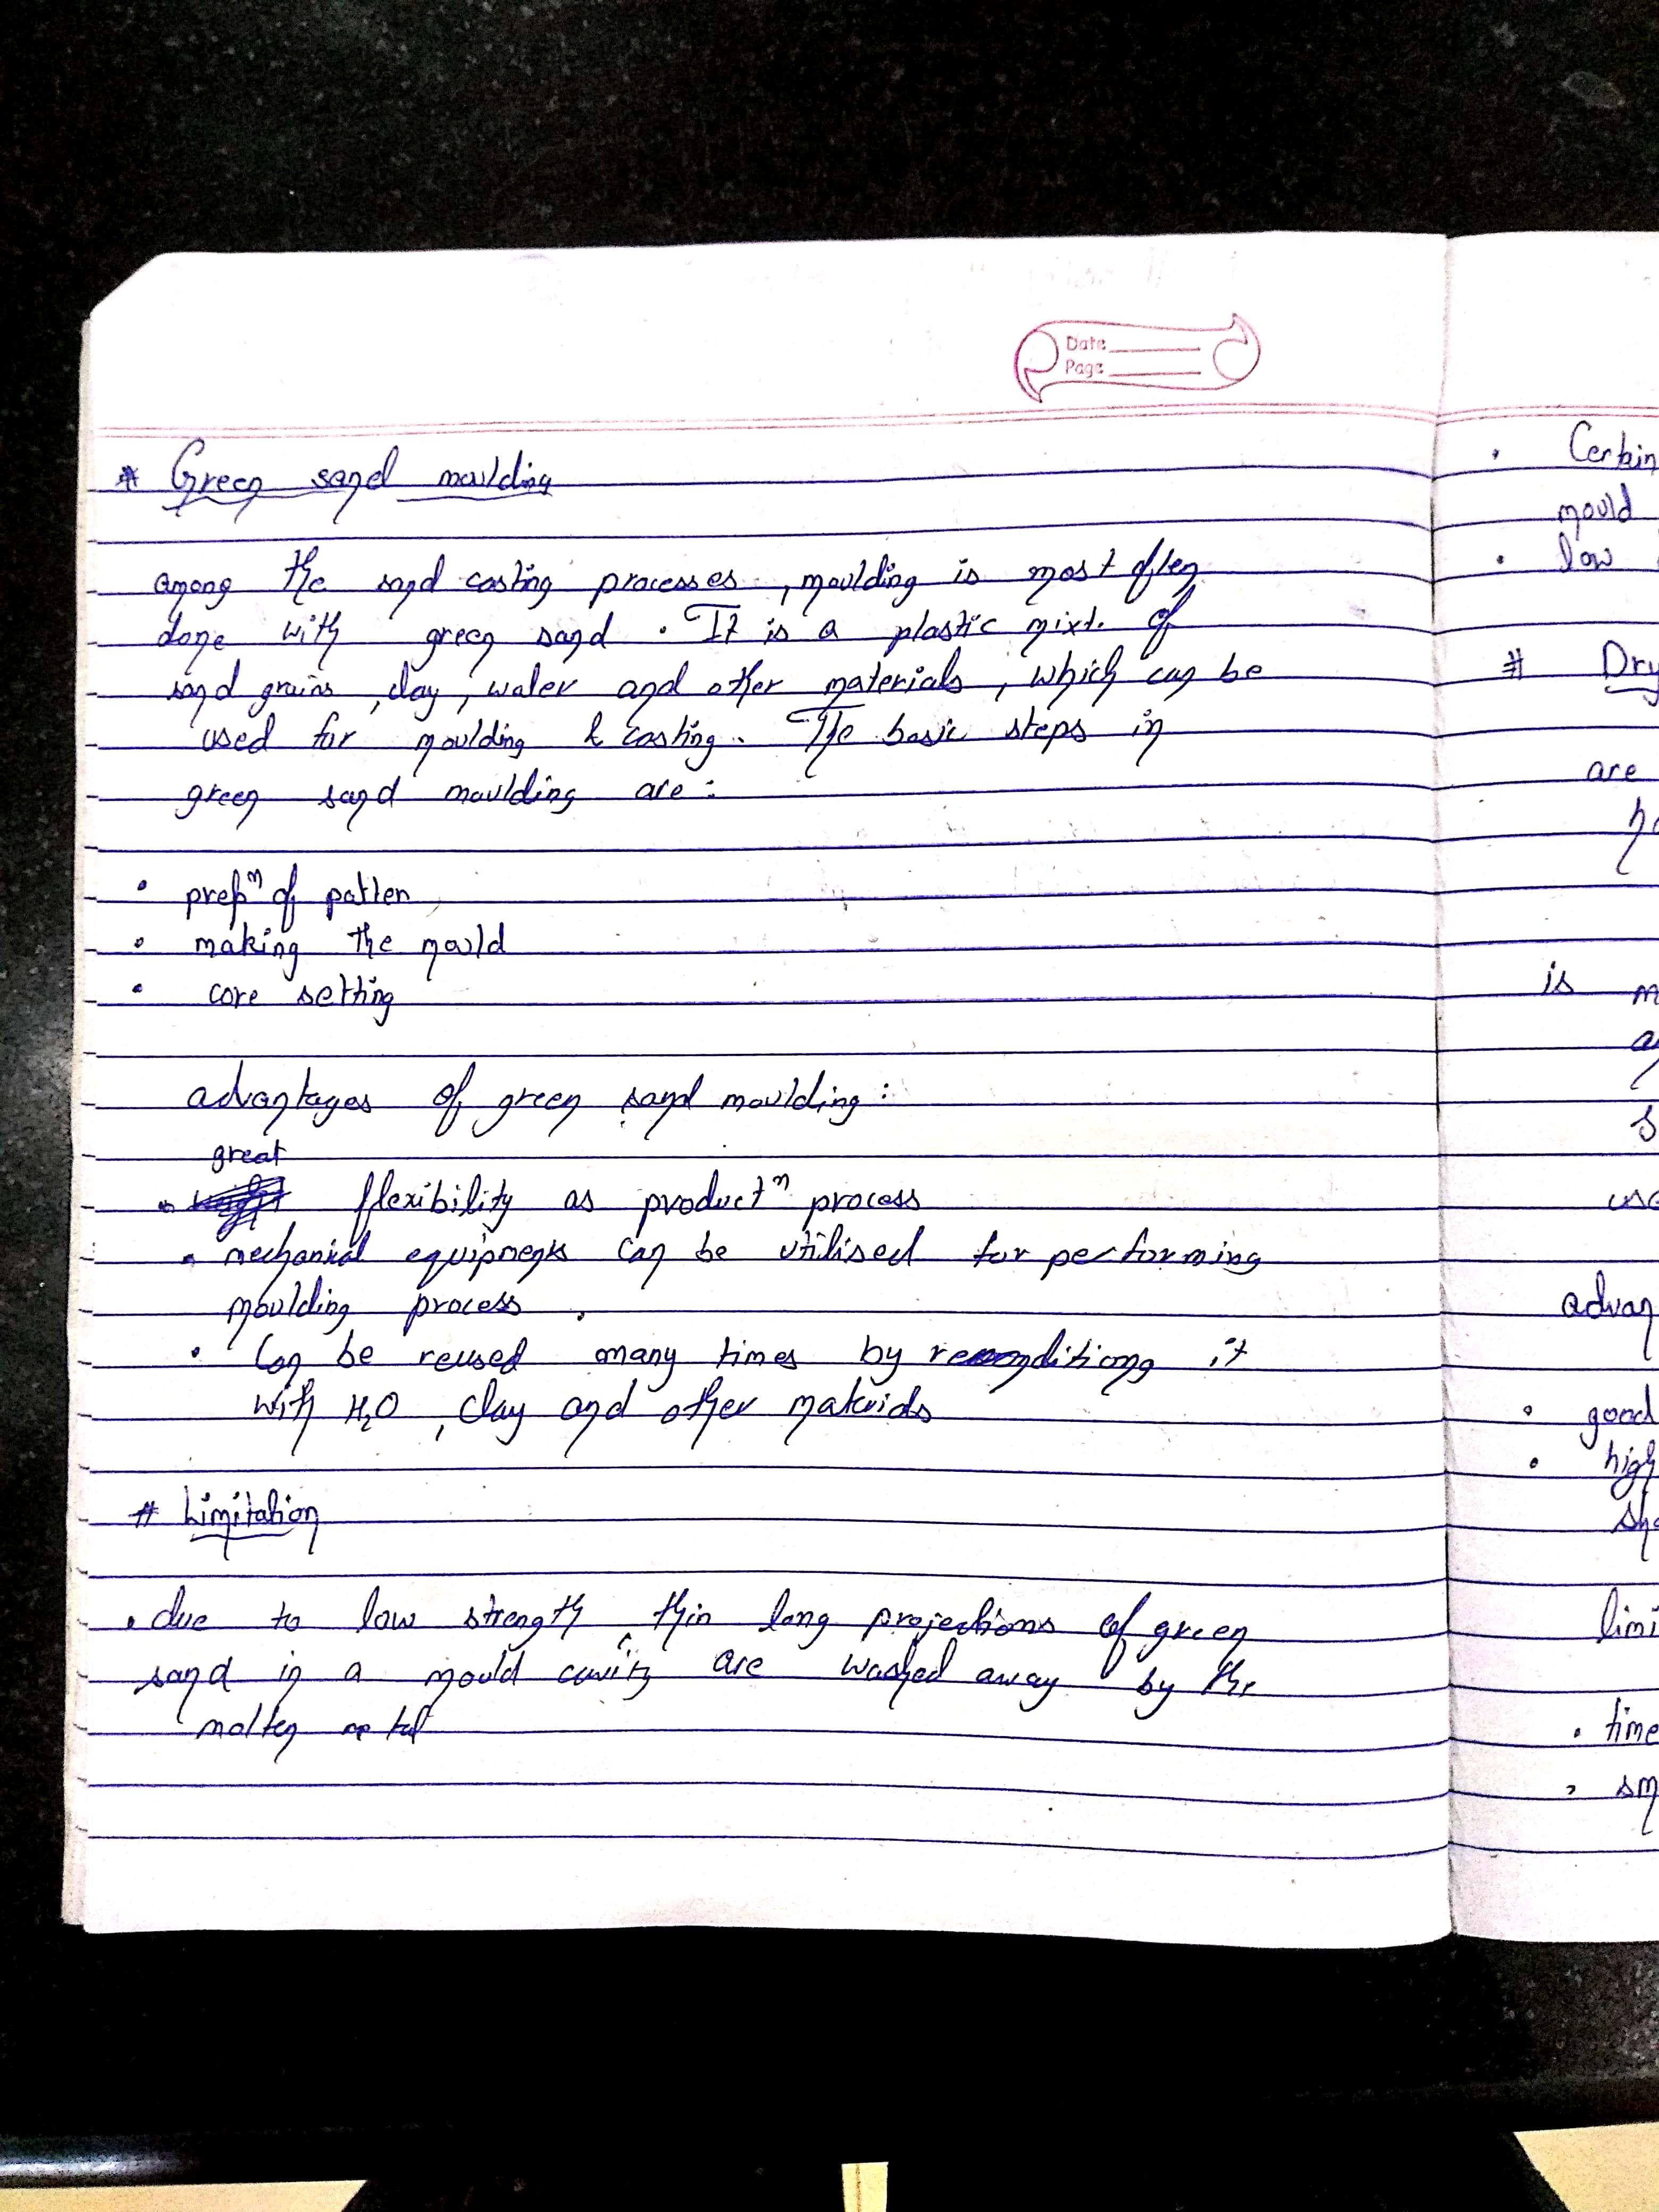 Date
Page
# Green sand moulding
among the sand casting processes, moulding is most often
done with green sand. It is a plastic mixt. of
sand grains, clay, water and other materials, which can be
used for moulding & casting. The basic steps in
green sand moulding are:
• prepⁿ of patten
• making the mould
• core setting
advantages of green sand moulding:
great
• flexibility as productⁿ process
• mechanical equipments can be utilised for performing
moulding process.
• Can be reused many times by reconditiong it
with H₂O, clay and other materials
# Limitation
• due to low strength, thin long projections of green
sand in a mould cavity are washed away by the
molten metal
• Certain
mould
• low
# Dry
are
is
advan
• good
• high
limi
• time